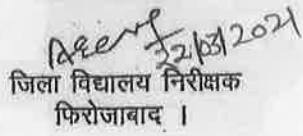 22/03/2021
जिला विद्यालय निरीक्षक
फिरोजाबाद ।